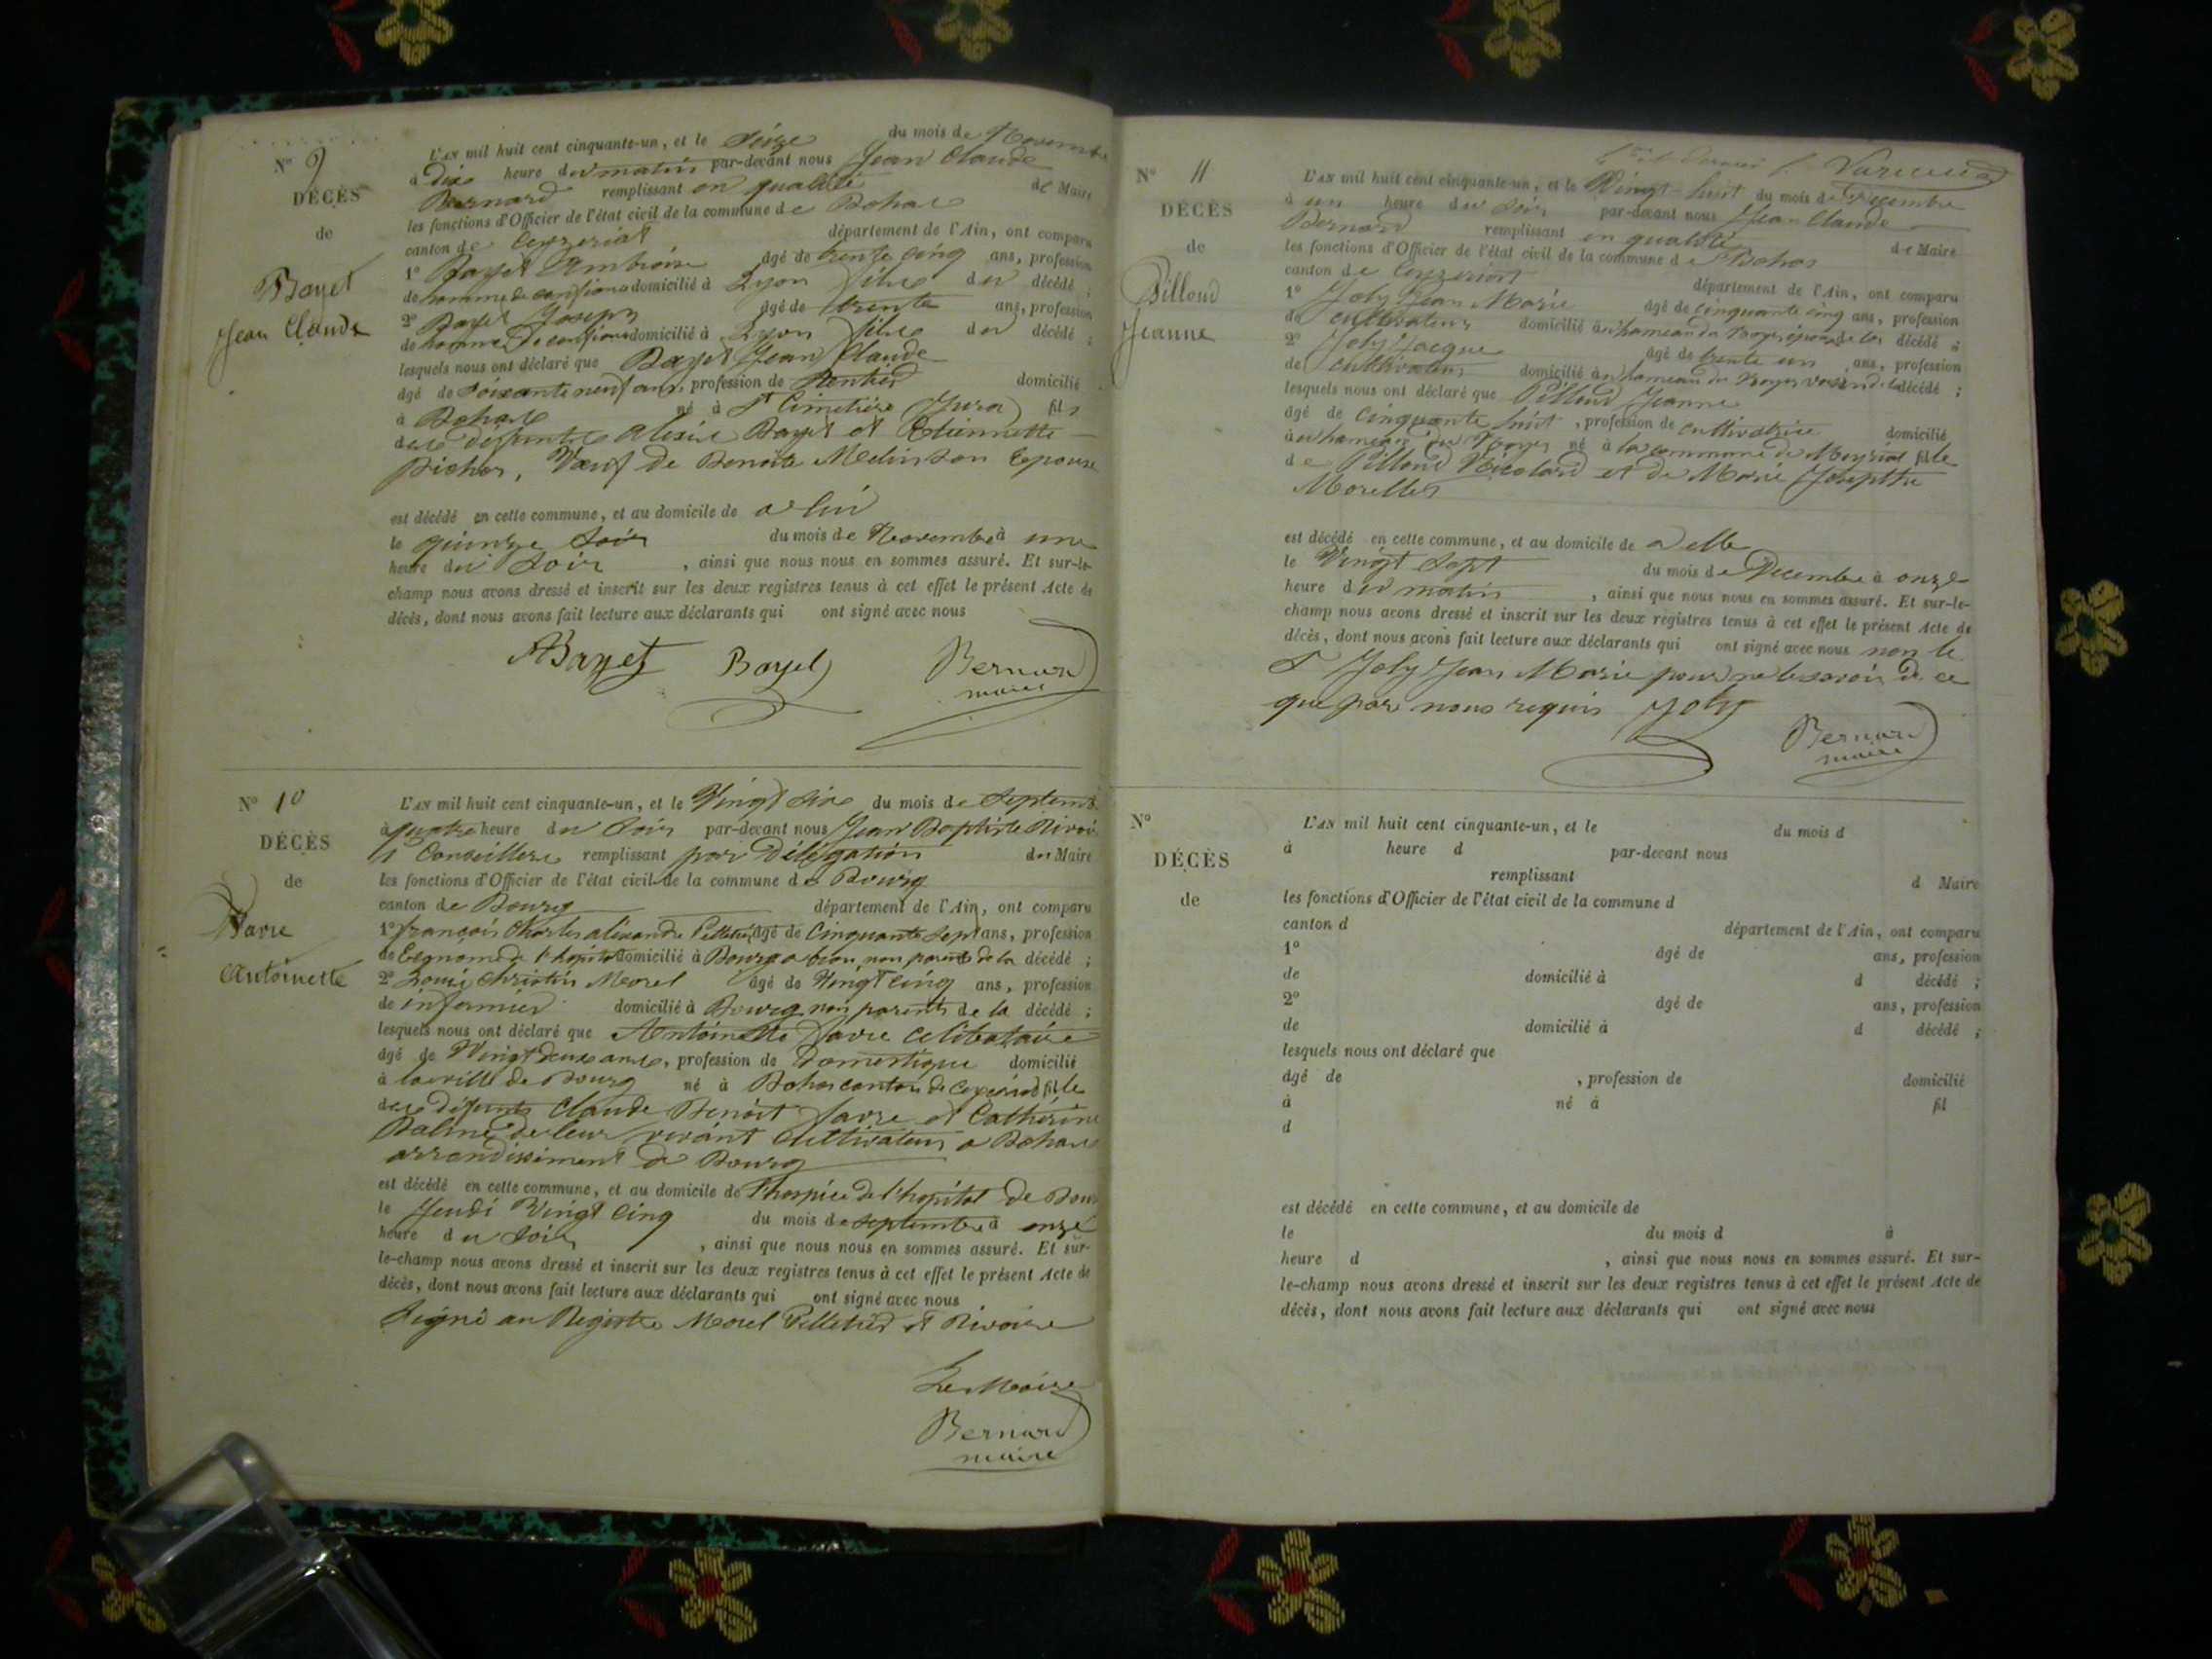 N° 9
DÉCÈS
de
Bayet
Jean Claude
L'AN mil huit cent cinquante-un, et le Seize du mois de Novembre
à dix heure du matin par-devant nous Jean Claude
Bernard remplissant en qualité de Maire
les fonctions d'Officier de l'état civil de la commune de Bohas
canton de Ceyzeriat département de l'Ain, ont comparu
1° Bayet Ambroise âgé de trente cinq ans, profession
de homme de confiance domicilié à Lyon fils du décédé ;
2° Bayet Joseph âgé de trente ans, profession
de homme de confiance domicilié à Lyon fils du décédé ;
lesquels nous ont déclaré que Bayet Jean Claude
âgé de Soixante neuf ans, profession de Rentier domicilié
à Bohas né à St Cimetière (Jura) fils
des défunts Alexis Bayet et Etiennette
Pichon, Veuf de Benoite son Epouse
est décédé en cette commune, et au domicile de a lui
le quinze Soir du mois de Novembre à une
heure du Soir , ainsi que nous nous en sommes assuré. Et sur-le-
champ nous avons dressé et inscrit sur les deux registres tenus à cet effet le présent Acte de
décès, dont nous avons fait lecture aux déclarants qui ont signé avec nous
ABayet Bayet Bernard
maire
N° 10
DÉCÈS
de
Favre
Antoinette
L'AN mil huit cent cinquante-un, et le Vingt Six du mois de Septemb
à quatre heure du Soir par-devant nous Jean Baptiste Rivoir
Conseiller remplissant par Délégation du Maire
les fonctions d'Officier de l'état civil de la commune de Bourg
canton de Bourg département de l'Ain, ont comparu
1° françois Charles alexandre Pelletier âgé de Cinquante Sept ans, profession
de Econome de l'hopital domicilié à Bourg non parent de la décédé ;
2° Louis Christin Morel âgé de Vingt Cinq ans, profession
de infirmier domicilié à Bourg non parents de la décédé ;
lesquels nous ont déclaré que Antoinette favre Celibataire
âgé de Vingt deux ans, profession de Domestique domicilié
à la ville de Bourg né à Bohas canton de Ceyzeriat fille
des défunts Claude Benoit favre et Catherine
de leur vivant Cultivateurs a Bohas
arrondissement de Bourg
est décédé en cette commune, et au domicile de l'hospice de l'hopital de Bour
le Jeudi Vingt Cinq du mois de Septembre à onze
heure du Soir , ainsi que nous nous en sommes assuré. Et sur-
le-champ nous avons dressé et inscrit sur les deux registres tenus à cet effet le présent Acte de
décès, dont nous avons fait lecture aux déclarants qui ont signé avec nous
Signé au Registre Morel Pelletier et Rivoire
Le Maire
Bernard
maire
N° 11
DÉCÈS
de
Pilloud
Jeanne
L'AN mil huit cent cinquante-un, et le Vingt-huit du mois de Decembre
à un heure du Soir par-devant nous Jean Claude
Bernard remplissant en qualité de Maire
les fonctions d'Officier de l'état civil de la commune de Bohas
canton de Ceyzeriat département de l'Ain, ont comparu
1° Joly Jean Marie âgé de cinquante cinq ans, profession
de cultivateur domicilié au hameau du époux de la décédé ;
2° Joly Jacque âgé de trente un ans, profession
de cultivateur domicilié au hameau du voisin de la décédé ;
lesquels nous ont déclaré que Pilloud Jeanne
âgé de Cinquante huit , profession de cultivatrice domicilié
au hameau du né à la commune de Meyriat fille
de Pilloud Nicolard et de Marie Josepthe
Morellet
est décédé en cette commune, et au domicile de a elle
le Vingt Sept du mois de Decembre à onze
heure du matin , ainsi que nous nous en sommes assuré. Et sur-le-
champ nous avons dressé et inscrit sur les deux registres tenus à cet effet le présent Acte de
décès, dont nous avons fait lecture aux déclarants qui ont signé avec nous non le
S Joly Jean Marie pour ne le savoir de ce
que par nous requis Joly
Bernard
maire
N°
DÉCÈS
de
L'AN mil huit cent cinquante-un, et le du mois d
à heure d par-devant nous
remplissant d Maire
les fonctions d'Officier de l'état civil de la commune d
canton d département de l'Ain, ont comparu
1° âgé de ans, profession
de domicilié à d décédé ;
2° âgé de ans, profession
de domicilié à d décédé ;
lesquels nous ont déclaré que
âgé de , profession de domicilié
à né à fil
d
est décédé en cette commune, et au domicile de
le du mois d à
heure d , ainsi que nous nous en sommes assuré. Et sur-
le-champ nous avons dressé et inscrit sur les deux registres tenus à cet effet le présent Acte de
décès, dont nous avons fait lecture aux déclarants qui ont signé avec nous